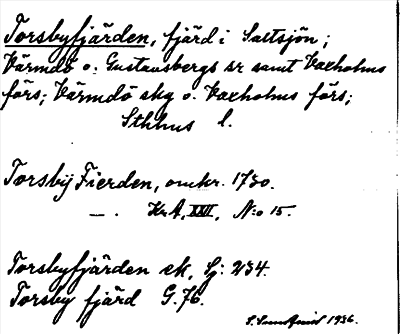 Torsbyfjärden, fjärd i Saltsjön;
Värmdö o. Gustavsbergs sr samt Vaxholms
förs; Värmdö skg o. Vaxholms förs;
Sthlms l.
Torsbij Fierden, omkr. 1730.
—. Kr A, XXII, N:o 15.
Torsbyfjärden ek, Sj: 234.
Torsby fjärd G. 76.
1936.